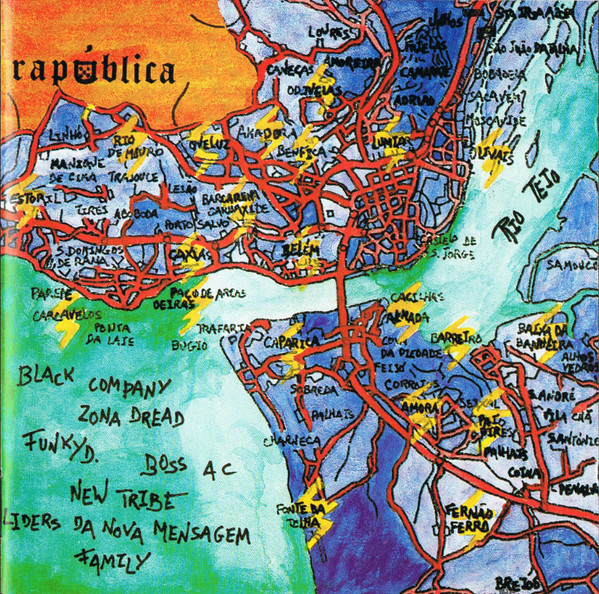 rapública
LOURES
CANEÇAS
ODIVELAS
CAMARATE
SÃO JOÃO DA TALHA
BOBADELA
SACAVEM
MOSCAVIDE
OLIVAIS
LUMIAR
AMADORA
BENFICA
QUELUZ
LINHÓ
RIO
DE MOURO
MANIQUE
DE CIMA
TRAJOUCE
LEIÃO
BARCARENA
CARNAXIDE
ESTORIL
TIRES
ABOBODA
PORTO SALVO
S. DOMINGOS
DE RANA
CAXIAS
BELÉM
CASTELO DE
S. JORGE
RIO TEJO
SAMOUCO
PAREDE
CARCAVELOS
PAÇO DE ARCOS
OEIRAS
PONTA
DA LAJE
BUGIO
TRAFARIA
CAPARICA
CACILHAS
ALMADA
COVA
DA PIEDADE
FEIJO
CORROIOS
BARREIRO
BAIXA DA
BANHEIRA
ALHOS
VEDROS
SOBREDA
PALHAIS
AMORA
SEIXAL
PAIO
PIRES
PALHAIS
COINA
S. ANDRÉ
VILA CHÃ
CHARNECA
FONTE DA
TELHA
FERNAO
FERRO
BLACK COMPANY
ZONA DREAD
FUNKY D.
BOSS AC
NEW TRIBE
LIDERS DA NOVA MENSAGEM
FAMILY